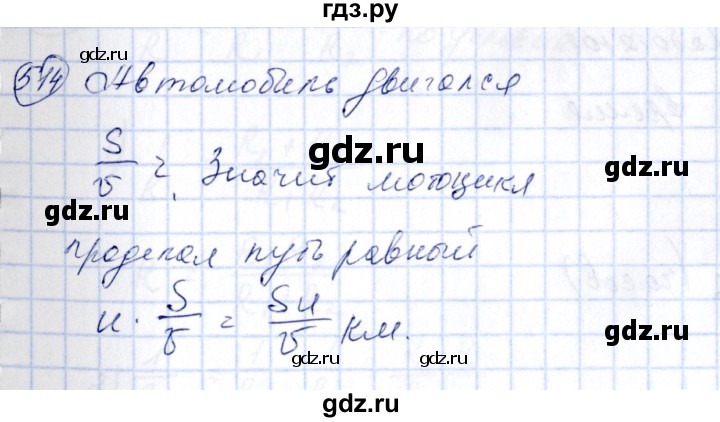 гдз.ру
gdz.ru
514 Автомобиль двигался
gdz.ru
S/v г. Значит мотоцикл
gdz.ru
gdz.ru
проделал путь равный
gdz.ru
u · S/v = Su/v км.
gdz.ru
gdz.ru